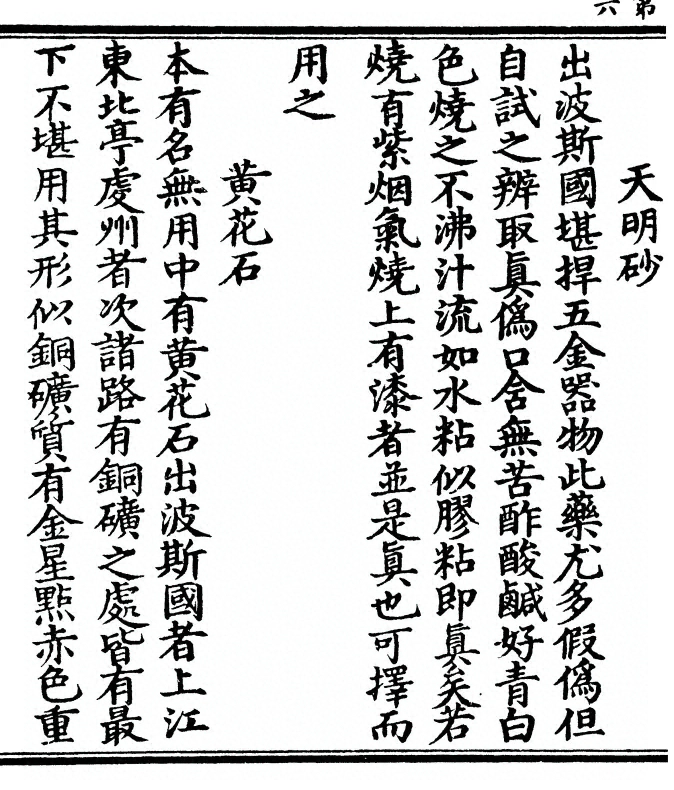 第六
天明砂
出波斯國堪捍五金器物此藥尤多假偽但
自試之辨取眞偽口含無苦酢酸鹹好青白
色燒之不沸汁流如水粘似膠粘即眞矣若
燒有紫烟氣燒上有漆者並是眞也可擇而
用之
黄花石
本有名無用中有黄花石出波斯國者上江
東北亭處州者次諸路有銅礦之處皆有最
下不堪用其形似銅礦質有金星點赤色重